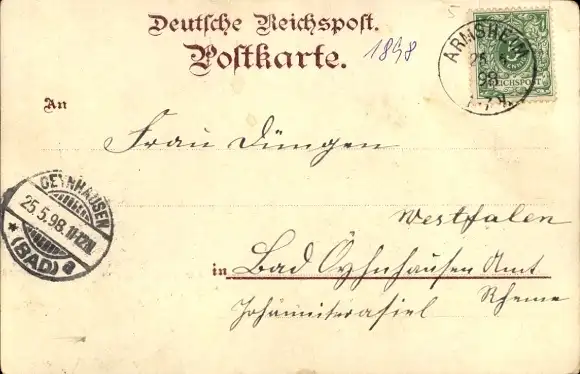 Deutsche Reichspost.
Postkarte.
1898
5
ARMSHEIM
98
REICHSPOST
An
Frau Düngen
OEYNHAUSEN
25.5.98.11-12N.
* (BAD) a
Westfalen
in Bad Öyhnhausen Amt
Rheme
Johänniterasiel